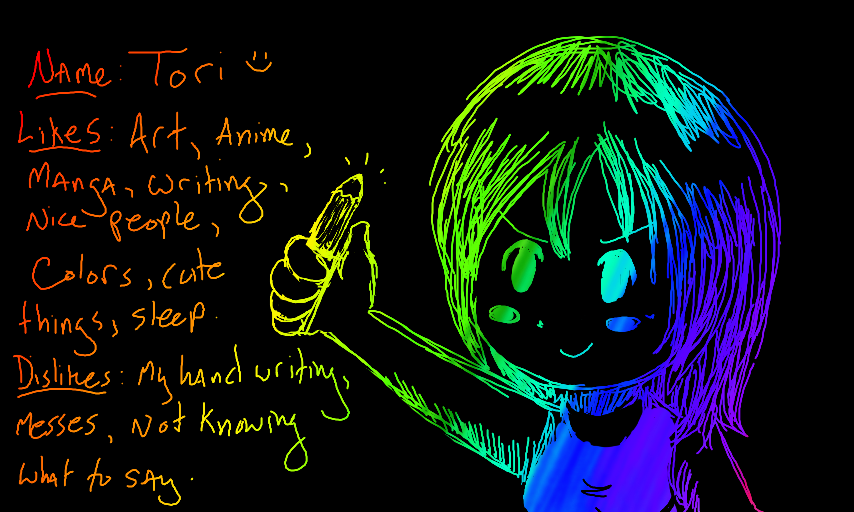 Name: Tori
Likes: Art, Anime,
Manga, writing,
Nice people,
Colors, cute
things, sleep.
Dislikes: My hand writing,
Messes, Not knowing
what to say.